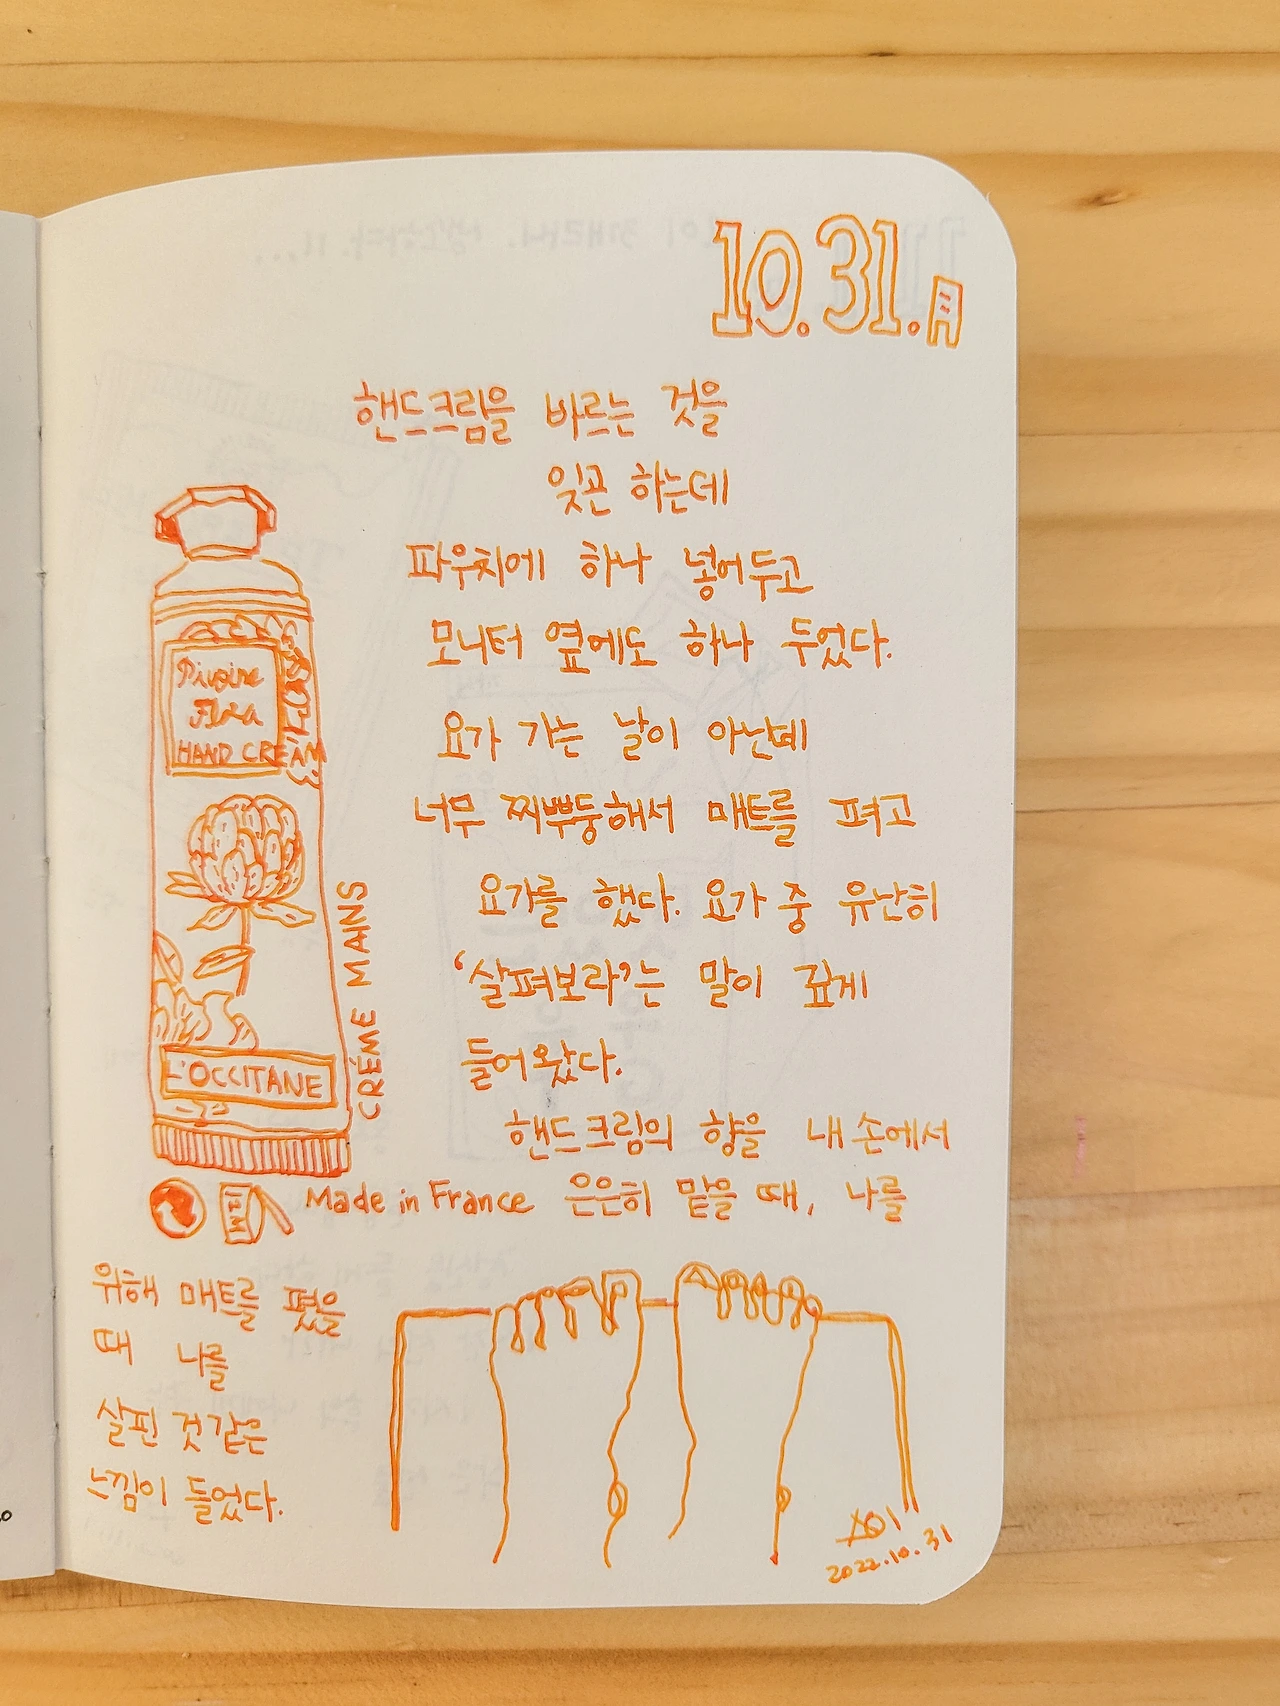 10.31.月
핸드크림을 바르는 것을
잊곤 하는데
파우치에 하나 넣어두고
모니터 옆에도 하나 두었다.
요가 가는 날이 아닌데
너무 찌뿌둥해서 매트를 펴고
요가를 했다. 요가 중 유난히
'살펴보라'는 말이 깊게
들어왔다.
핸드크림의 향을 내 손에서
은은히 맡을 때, 나를
위해 매트를 폈을
때 나를
살핀 것 같은
느낌이 들었다.
Pivoine
Flora
HAND CREAM
L'OCCITANE
CRÈME MAINS
Made in France
2022.10.31